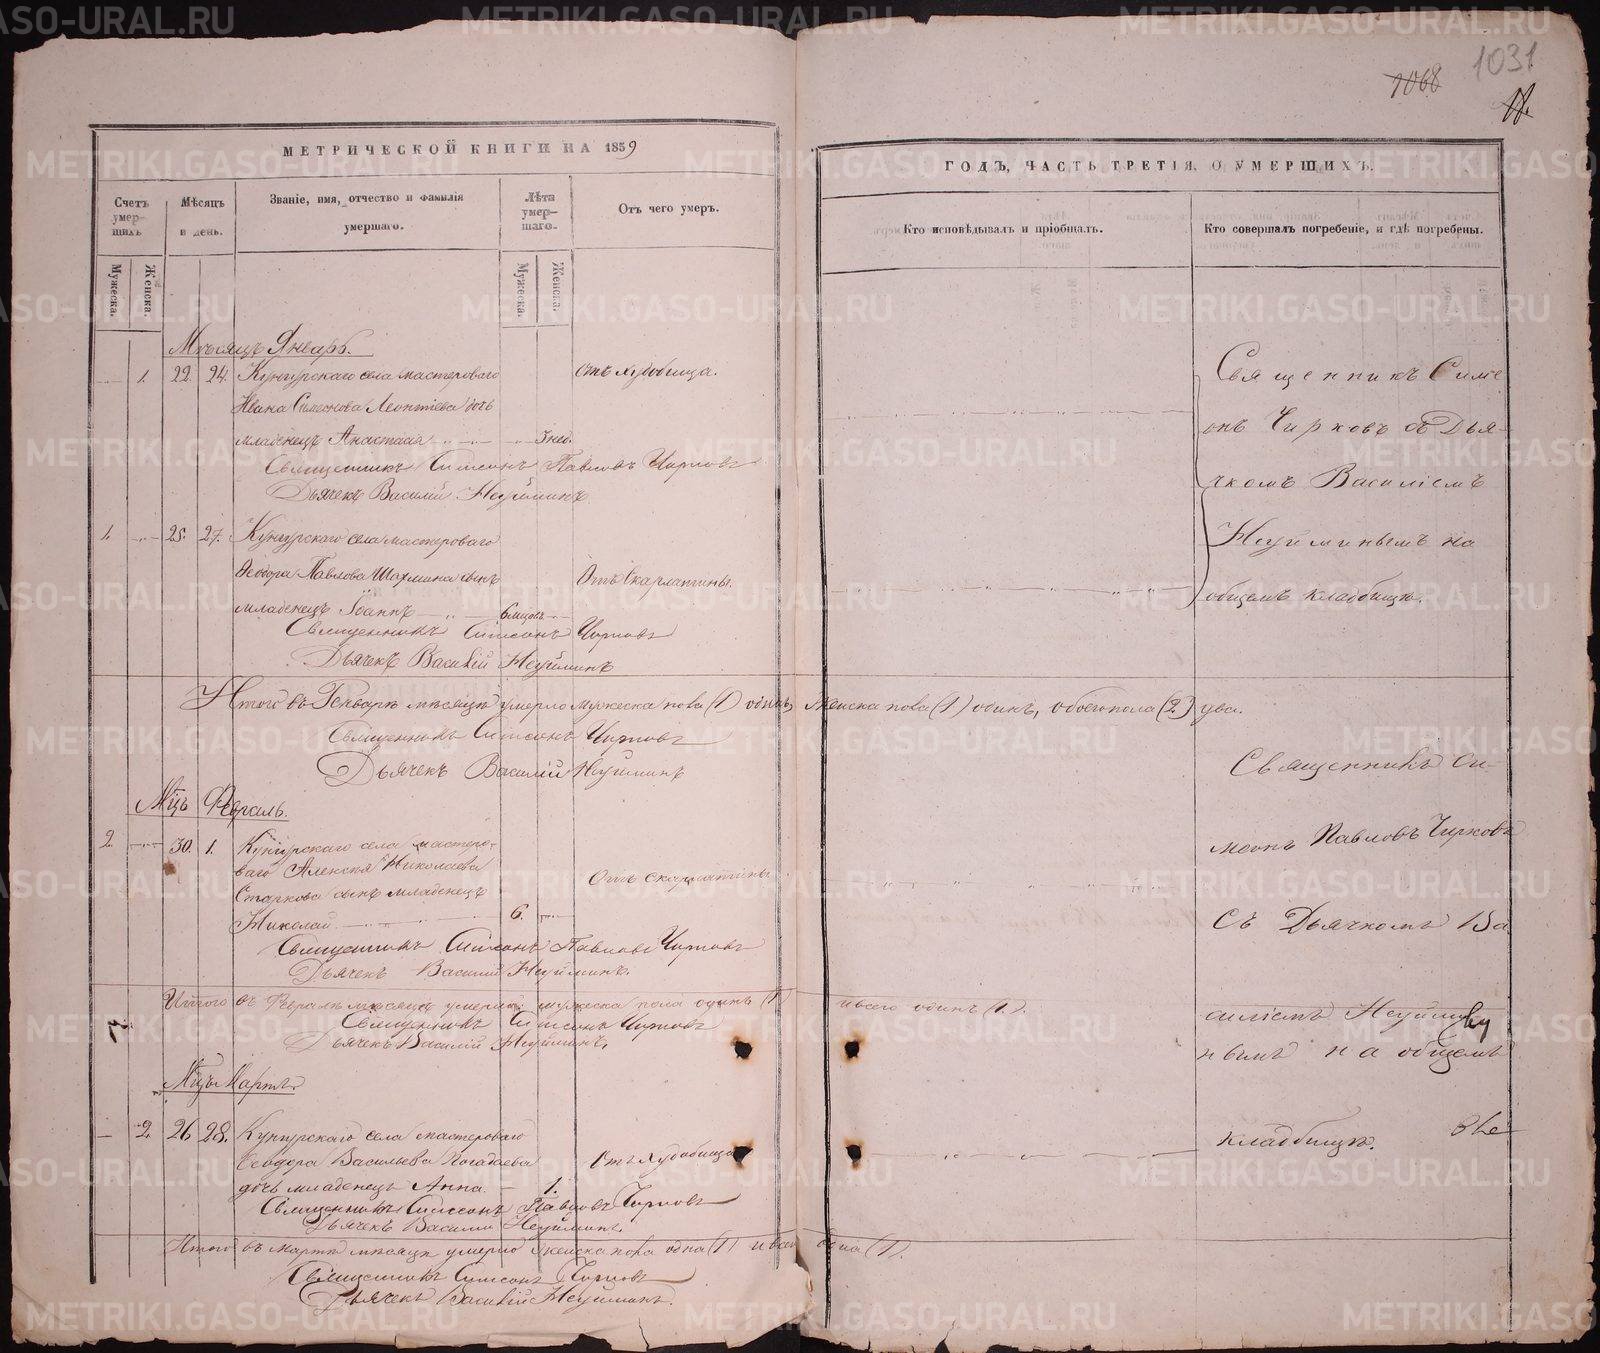 1068
1031
МЕТРИЧЕСКОЙ КНИГИ НА 1859
ГОДЪ, ЧАСТЬ ТРЕТІЯ, О УМЕРШИХЪ.
Счетъ умер-шихъ
Мѣсяцъ и день.
Званіе, имя, отчество и фамилія умершаго.
Лѣта умер-шаго.
Отъ чего умеръ.
Кто исповѣдывалъ и пріобщалъ.
Кто совершалъ погребеніе, и гдѣ погребены.
Мужеска.
Женска.
Мужеска.
Женска.
Мѣсяцъ Январь.
1. 22. 24. Кунгурскаго села мастероваго
Отъ худобища.
Ивана Симеонова Леонтіева дочь
младенецъ Анастасія 3 нед.
Священникъ Симеонъ Павловъ Чирковъ
Дьячекъ Василій Неуйминъ
1. 25. 27. Кунгурскаго села мастероваго
Ѳеодора Павлова Шахмина сынъ
Отъ Скарлатины.
младенецъ Іоаннъ 6 мцовъ
Священникъ Симеонъ Чирковъ
Дьячекъ Василій Неуйминъ
Священникъ Симе
онъ Чирковъ съ Дья-
чкомъ Василіемъ
Неуйминымъ на
общемъ кладбищѣ.
Итого въ Генварѣ мѣсяцѣ умерло мужеска пола (1) одинъ, женска пола (1) одинъ, обоего пола (2) два.
Священникъ Симеонъ Чирковъ
Дьячекъ Василій Неуйминъ
Мцъ Февраль.
2 30. 1. Кунгурскаго села мастеро-
ваго Алексѣя Николаева
Старкова сынъ младенецъ
Отъ скарлатины
Николай 6.
Священникъ Симеонъ Павловъ Чирковъ
Дьячекъ Василій Неуйминъ.
Итого въ Февралѣ мѣсяцѣ умерло мужеска пола одинъ (1) и всего одинъ (1).
Священникъ Симеонъ Чирковъ
Дьячекъ Василій Неуйминъ.
Мцъ Мартъ.
2. 26 28. Кунгурскаго села мастероваго
Ѳеодора Васильева Погадаева
Отъ худобища
дочь младенецъ Анна 1.
Священникъ Симеонъ Павловъ Чирковъ
Дьячекъ Василій Неуйминъ.
Священникъ Си-
меонъ Павловъ Чирковъ
съ Дьячкомъ Ва
силіемъ Неуйми
нымъ на общемъ
кладбищѣ.
Итого въ мартѣ мѣсяцѣ умерло женска пола одна (1) и всего одна (1).
Священникъ Симеонъ Чирковъ
Дьячекъ Василій Неуйминъ.
METRIKI.GASO-URAL.RU